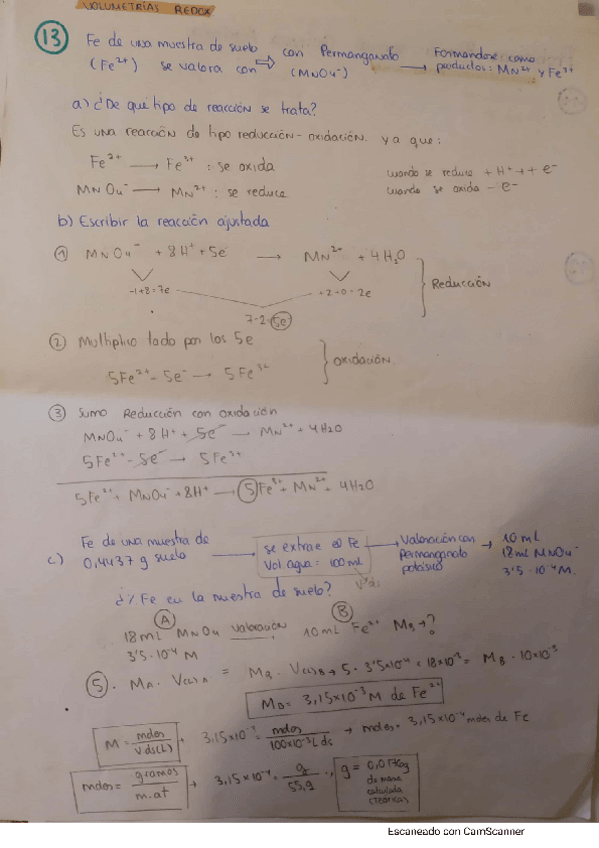 VOLUMETRÍAS REDOX
13 Fe de una muestra de suelo con Permanganato Formandose como
(Fe²⁺) se valora con ⇨ (MnO4⁻) → productos: Mn²⁺ y Fe³⁺
a) ¿De qué tipo de reacción se trata?
Es una reacción de tipo reducción-oxidación. ya que:
Fe²⁺ → Fe³⁺ : se oxida
cuando se reduce + H⁺ + e⁻
MnO4⁻ → Mn²⁺ : se reduce
cuando se oxida - e⁻
b) Escribir la reacción ajustada
1 MnO4⁻ + 8H⁺ + 5e⁻ → Mn²⁺ + 4H2O
-1+8=7e +2-0=2e Reducción
7-2=5e
2 Multiplico lado por los 5e
5Fe²⁺ - 5e⁻ → 5Fe³⁺ oxidación
3 Sumo Reducción con oxidación
MnO4⁻ + 8H⁺ + 5e⁻ → Mn²⁺ + 4H2O
5Fe²⁺ - 5e⁻ → 5Fe³⁺
5Fe²⁺ + MnO4⁻ + 8H⁺ → 5Fe³⁺ + Mn²⁺ + 4H2O
c) Fe de una muestra de → se extrae el Fe → Valoración con → 10 ml
0,4437 g suelo Vol agua = 100 ml Permanganato 18 ml MnO4⁻
potásico 3'5·10⁻⁴ M.
¿% Fe en la muestra de suelo?
A B
18 ml MnO4 valoración 10 ml Fe²⁺ MB → ?
3'5·10⁻⁴ M
5 · MA · V(L)A = MB · V(L)B → 5 · 3'5×10⁻⁴ × 18×10⁻³ = MB · 10×10⁻³
MB = 3,15×10⁻³ M de Fe²⁺
M = moles / V ds(L) → 3,15×10⁻³ = moles / 100×10⁻³ L ds → moles = 3,15×10⁻⁴ moles de Fe
moles = gramos / m.at → 3,15×10⁻⁴ = g / 55,9 g = 0,0176g
de masa
calculada
(teóricas)
Escaneado con CamScanner